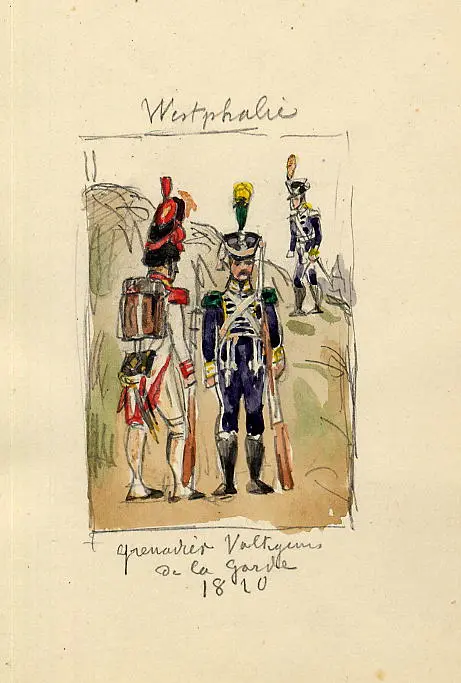 Westphalie
grenadier Voltigeurs
de la Garde
1810